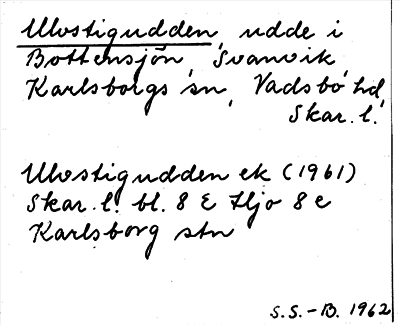 Ulvstigudden, udde i
Bottensjön, Svanvik
Karlsborgs sn, Vadsbo hd,
Skar. l.
Ulvstigudden ek (1961)
Skar. l. bl. 8 E Hjo 8 e
Karlsborg stn
S.S.-B. 1962